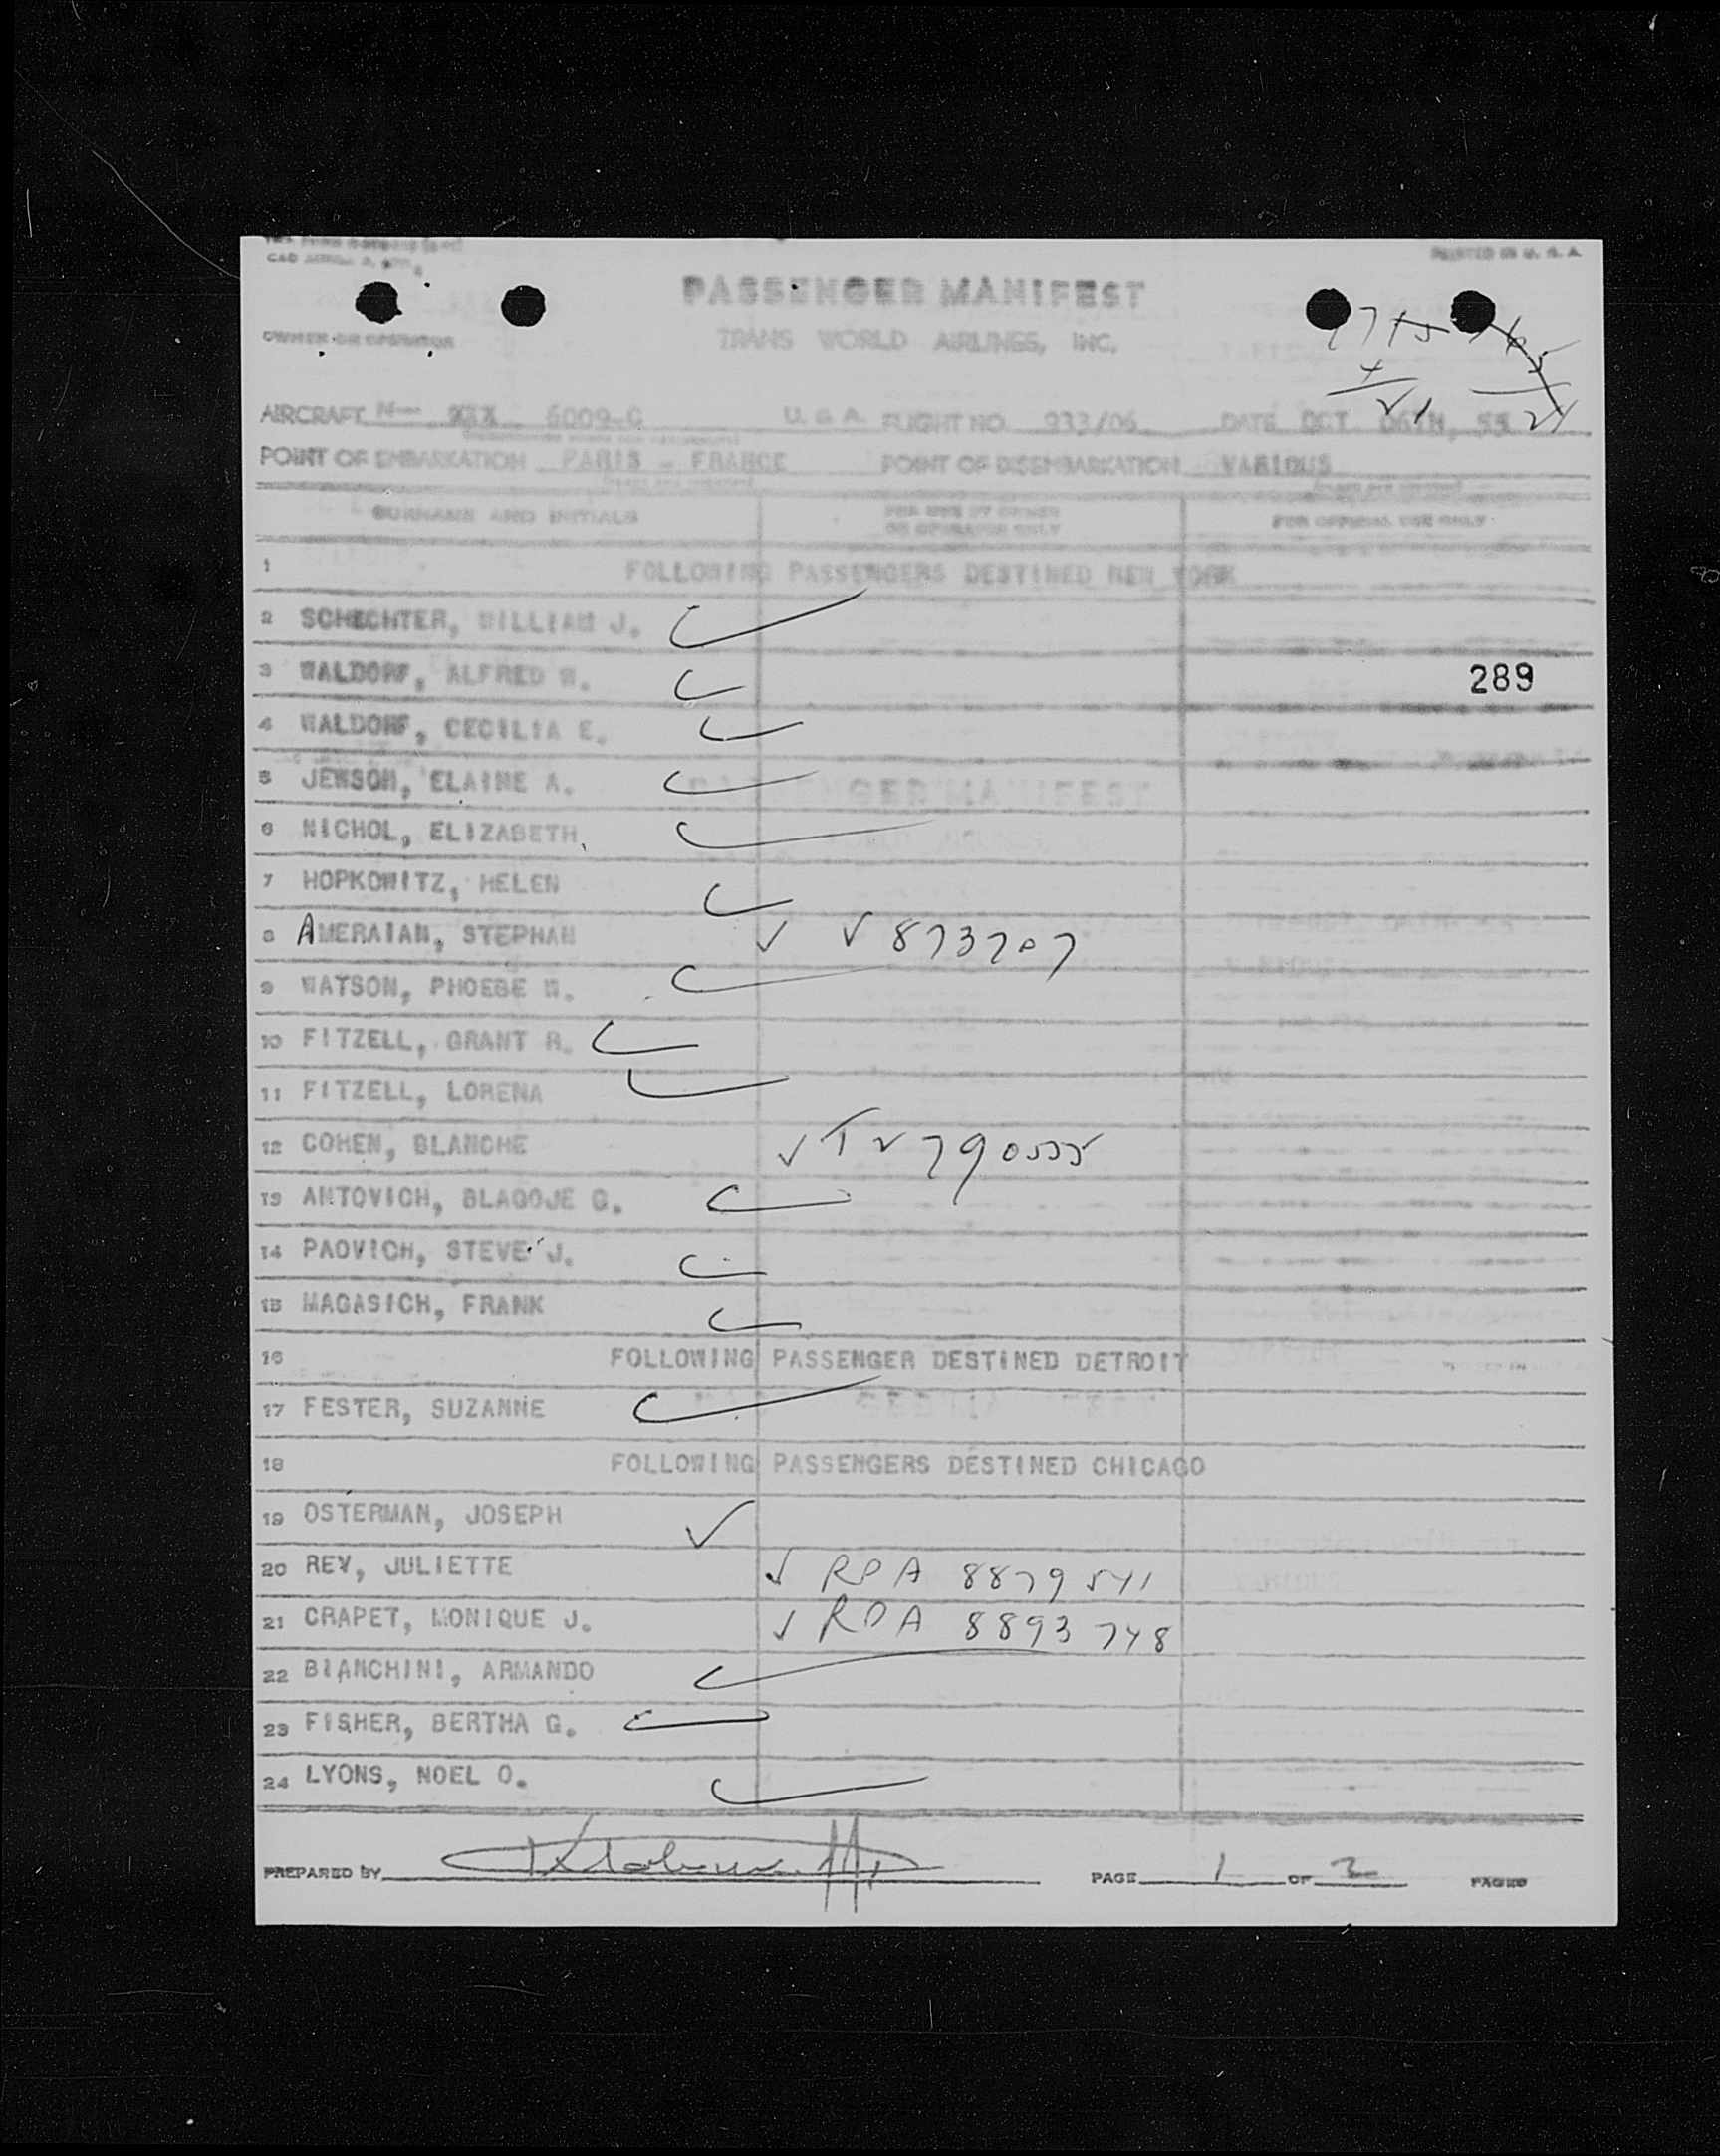 PRINTED IN U. S. A.
PASSENGER MANIFEST
OWNER OR OPERATOR TRANS WORLD AIRLINES, INC.
AIRCRAFT N— 6009-C U. S. A. FLIGHT NO. 933/06 DATE OCT 06TH, 55
POINT OF EMBARKATION PARIS - FRANCE POINT OF DISEMBARKATION VARIOUS
SURNAME AND INITIALS FOR USE BY OWNER OR OPERATOR ONLY FOR OFFICIAL USE ONLY
1 FOLLOWING PASSENGERS DESTINED NEW YORK
2 SCHECHTER, WILLIAM J.
3 WALDORF, ALFRED W. 289
4 WALDORF, CECILIA E.
5 JEWSON, ELAINE A.
6 NICHOL, ELIZABETH
7 HOPKOWITZ, HELEN
8 AMERAIAN, STEPHAN ✓ V 873707
9 WATSON, PHOEBE W.
10 FITZELL, GRANT R.
11 FITZELL, LORENA
12 COHEN, BLANCHE ✓
13 ANTOVICH, BLAGOJE G.
14 PAOVICH, STEVE J.
15 MAGASICH, FRANK
16 FOLLOWING PASSENGER DESTINED DETROIT
17 FESTER, SUZANNE
18 FOLLOWING PASSENGERS DESTINED CHICAGO
19 OSTERMAN, JOSEPH ✓
20 REV, JULIETTE ✓ RPA 8879541
21 CRAPET, MONIQUE J. ✓ RPA 8893748
22 BIANCHINI, ARMANDO
23 FISHER, BERTHA G.
24 LYONS, NOEL O.
PREPARED BY PAGE 1 OF 2 PAGES